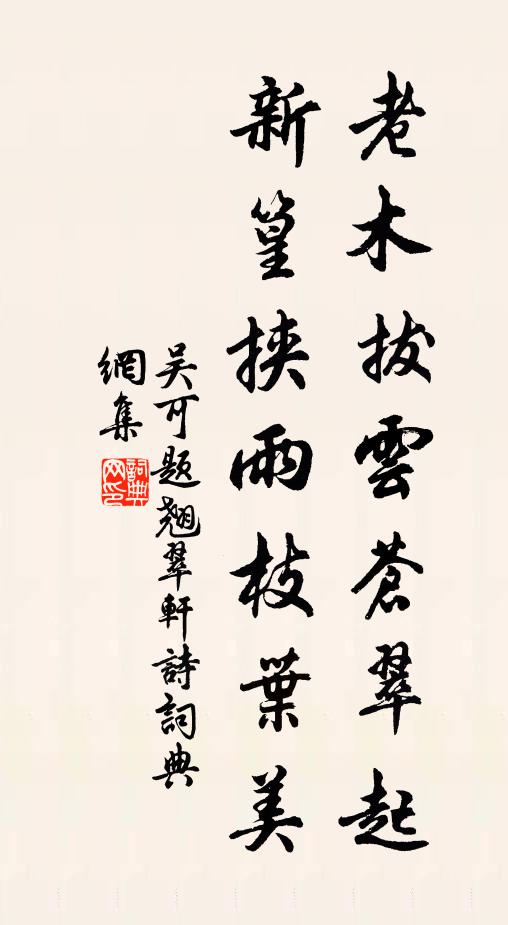 老木拔雲蒼翠起
新篁挾雨枝葉美
吴可题翹翠軒詩詞典
網集
詞典
网印